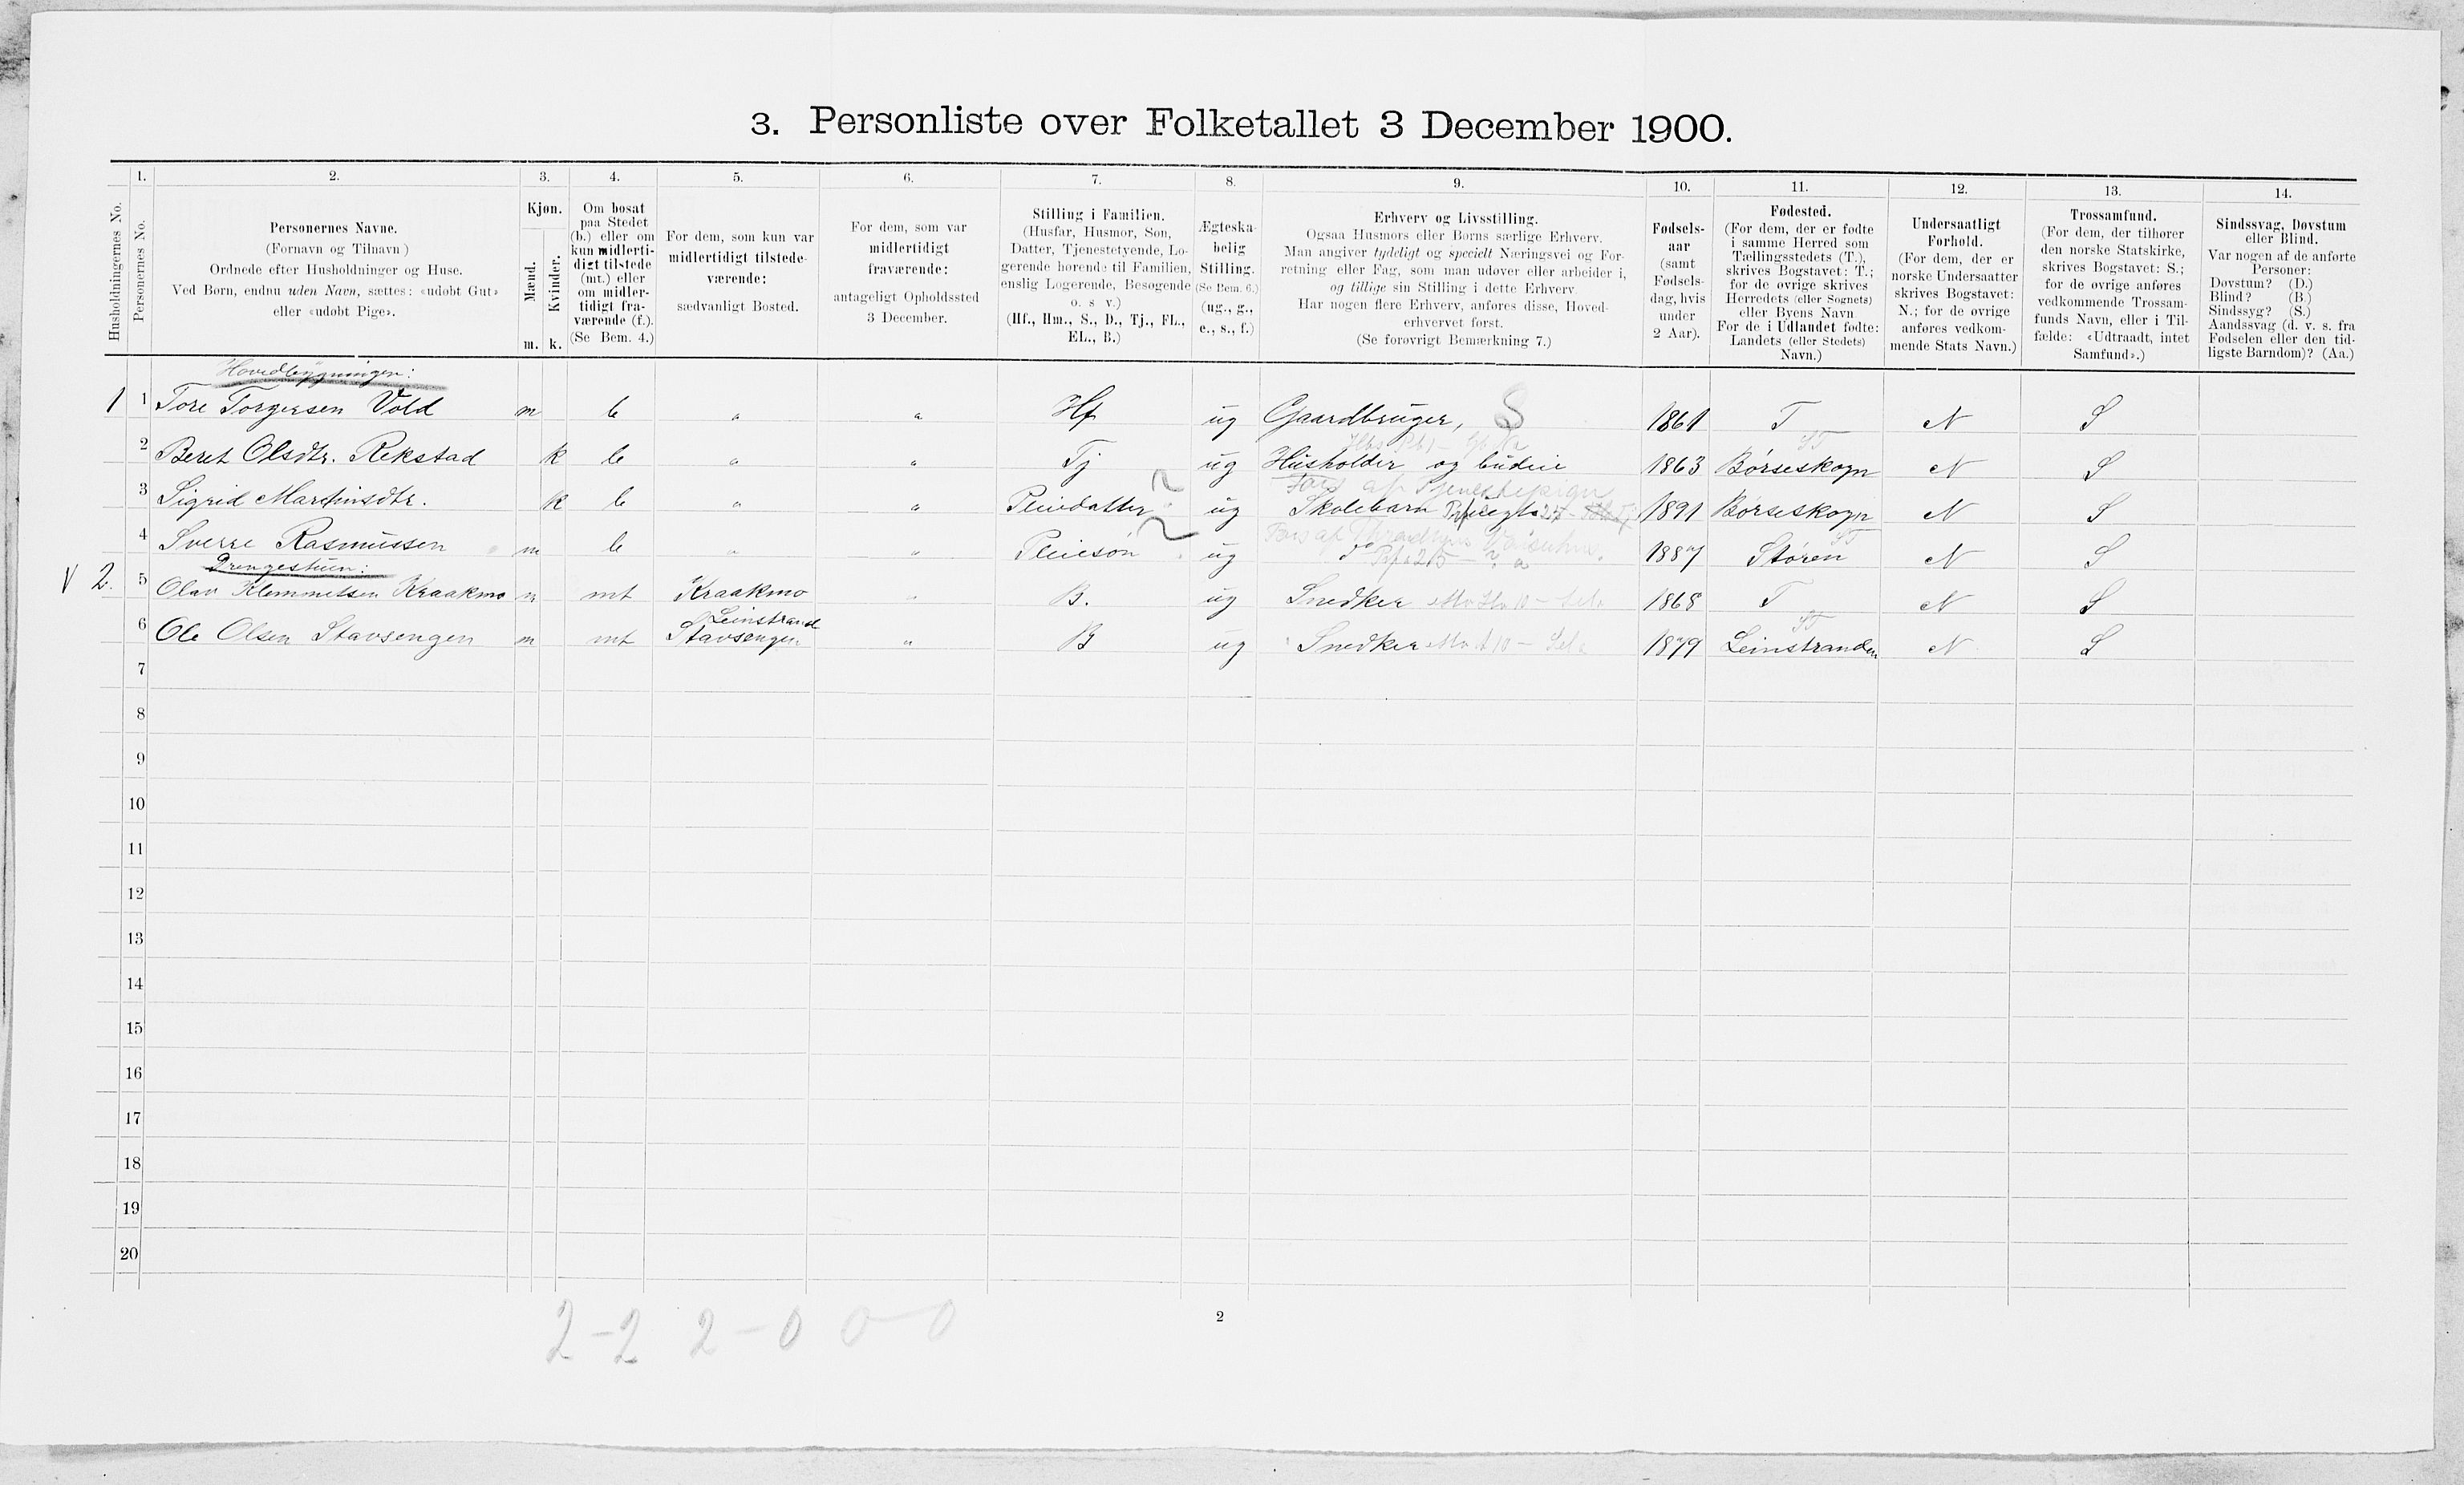 3. Personliste over Folketallet 3 December 1900.
1. 2. 3. 4. 5. 6. 7. 8. 9. 10. 11. 12. 13. 14.
Husholdningernes No.
Personernes No.
Personernes Navne.
(Fornavn og Tilnavn)
Ordnede efter Husholdninger og Huse.
Ved Børn, endnu uden Navn, sættes: «udøbt Gut»
eller «udøbt Pige».
Kjøn.
Mænd.
Kvinder.
m. k.
Om bosat
paa Stedet
(b.) eller om
kun midlerti-
digt tilstede
(mt.) eller
om midler-
tidigt fra-
værende (f.).
(Se Bem. 4.)
For dem, som kun var
midlertidigt tilstede-
værende:
sædvanligt Bosted.
For dem, som var
midlertidigt
fraværende:
antageligt Opholdssted
3 December.
Stilling i Familien.
(Husfar, Husmor, Søn,
Datter, Tjenestetyende, Lo-
gerende hørende til Familien,
enslig Logerende, Besøgende
o. s v.)
(Hf., Hm., S., D., Tj., FL.,
EL., B.)
Ægteska-
belig
Stilling.
(Se Bem. 6.)
(ug., g.,
e., s., f.)
Erhverv og Livsstilling.
Ogsaa Husmors eller Børns særlige Erhverv.
Man angiver tydeligt og specielt Næringsvei og For-
retning eller Fag, som man udøver eller arbeider i,
og tillige sin Stilling i dette Erhverv.
Har nogen flere Erhverv, anføres disse, Hoved-
erhvervet først.
(Se forøvrigt Bemærkning 7.)
Fødsels-
aar
(samt
Fødsels-
dag, hvis
under
2 Aar).
Fødested.
(For dem, der er fødte
i samme Herred som
Tællingsstedets (T.),
skrives Bogstavet: T.;
for de øvrige skrives
Herredets (eller Sognets)
eller Byens Navn
For de i Udlandet fødte:
Landets (eller Stedets)
Navn.)
Undersaatligt
Forhold.
(For dem, der er
norske Undersaatter
skrives Bogstavet:
N.; for de øvrige
anføres vedkom-
mende Stats Navn.)
Trossamfund.
(For dem, der tilhører
den norske Statskirke,
skrives Bogstavet: S.;
for de øvrige anføres
vedkommende Trossam-
funds Navn, eller i Til-
fælde: «Udtraadt, intet
Samfund».)
Sindssvag, Døvstum
eller Blind.
Var nogen af de anførte
Personer:
Døvstum? (D.)
Blind? (B.)
Sindssyg? (S.)
Aandssvag (d. v. s. fra
Fødselen eller den tid-
ligste Barndom)? (Aa.)
Hovedbygningen:
1 1 Tore Torgersen Vold m b " " Hf ug Gaardbruger, S 1861 T N S
2 Beret Olsdtr. Rekstad k b " " Tj ug Husholder og budeie 1863 Børseskogn ST N S
3 Sigrid Marthinsdtr. k b " " Pleiedatter ug Skolebarn 1891 Børseskogn N S
4 Sverre Rasmussen m b " " Pleiesøn ug do 1887 Støren ST N S
Drengestuen:
V 2. 5 Olav Klemmetsen Kraakmo m mt Kraakmo " B. ug Snedker 1868 T N S
Leinstrand
6 Ole Olsen Stavsengen m mt Stavsengen " B ug Snedker 1879 Leinstranden ST N S
7
8
9
10
11
12
13
14
15
16
17
18
19
20
2
2-2 2-0 0-0